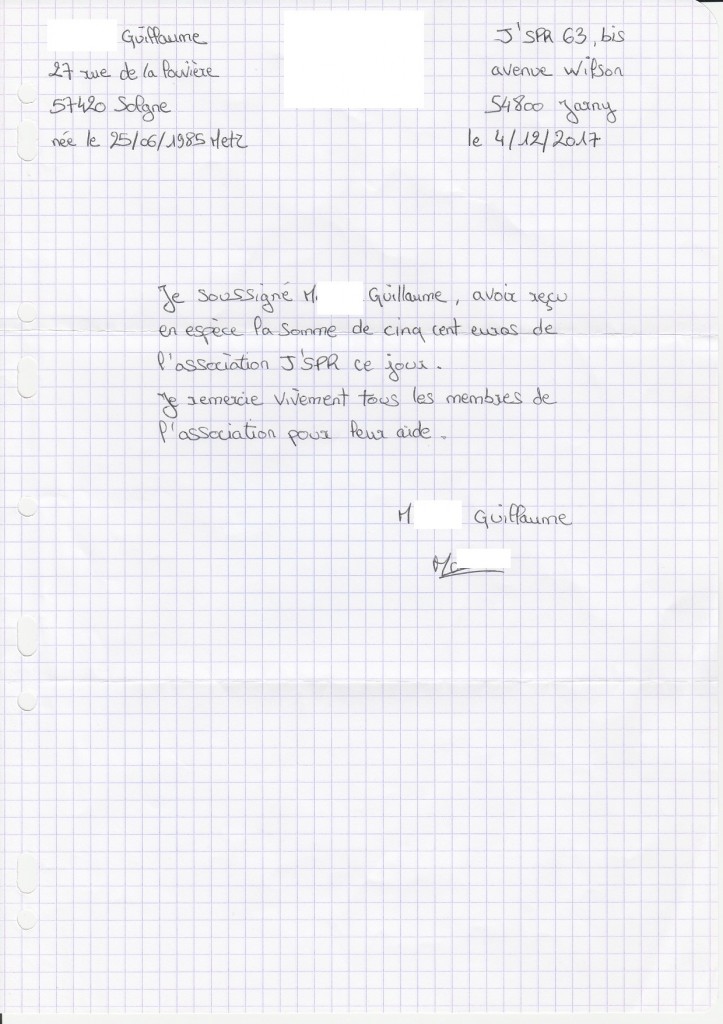 Guillaume
27 rue de la
57420 Solgne
née le 25/06/1985 Metz
J'SPR 63, bis
avenue Wilson
54800 Jarny
le 4/12/2017
Je soussigné M. Guillaume, avoir reçu
en espèce la somme de cinq cent euros de
l'association J'SPR ce jour.
Je remercie vivement tous les membres de
l'association pour leur aide.
M Guillaume